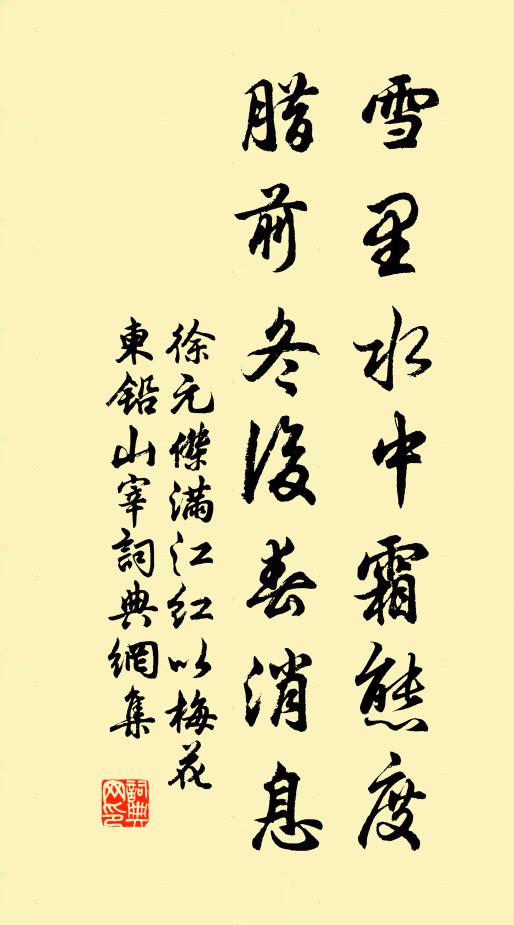 雪里水中霜態度
腊前冬後春消息
徐元傑滿江紅以梅花
東鉛山宰詞典網集
詞典网印